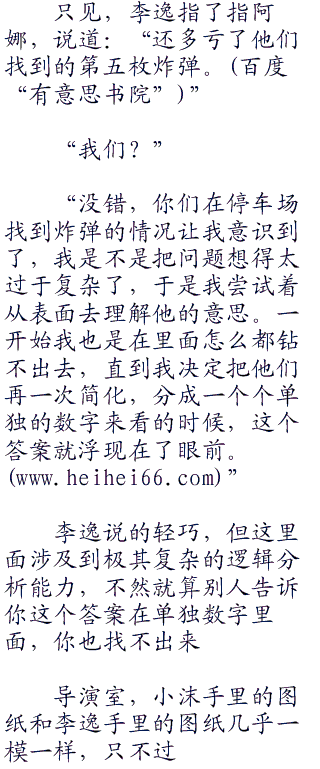 只见，李逸指了指阿
娜，说道：“还多亏了他们
找到的第五枚炸弹。(百度
“有意思书院”)”
“我们？”
“没错，你们在停车场
找到炸弹的情况让我意识到
了，我是不是把问题想得太
过于复杂了，于是我尝试着
从表面去理解他的意思。一
开始我也是在里面怎么都钻
不出去，直到我决定把他们
再一次简化，分成一个个单
独的数字来看的时候，这个
答案就浮现在了眼前。
(www.heihei66.com)”
李逸说的轻巧，但这里
面涉及到极其复杂的逻辑分
析能力，不然就算别人告诉
你这个答案在单独数字里
面，你也找不出来
导演室，小沫手里的图
纸和李逸手里的图纸几乎一
模一样，只不过